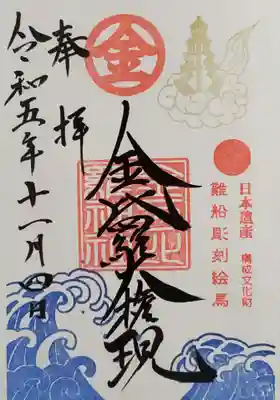 日本遺産 構成文化財
難船彫刻絵馬
金
金毘羅権現
奉拝
令和五年十一月四日